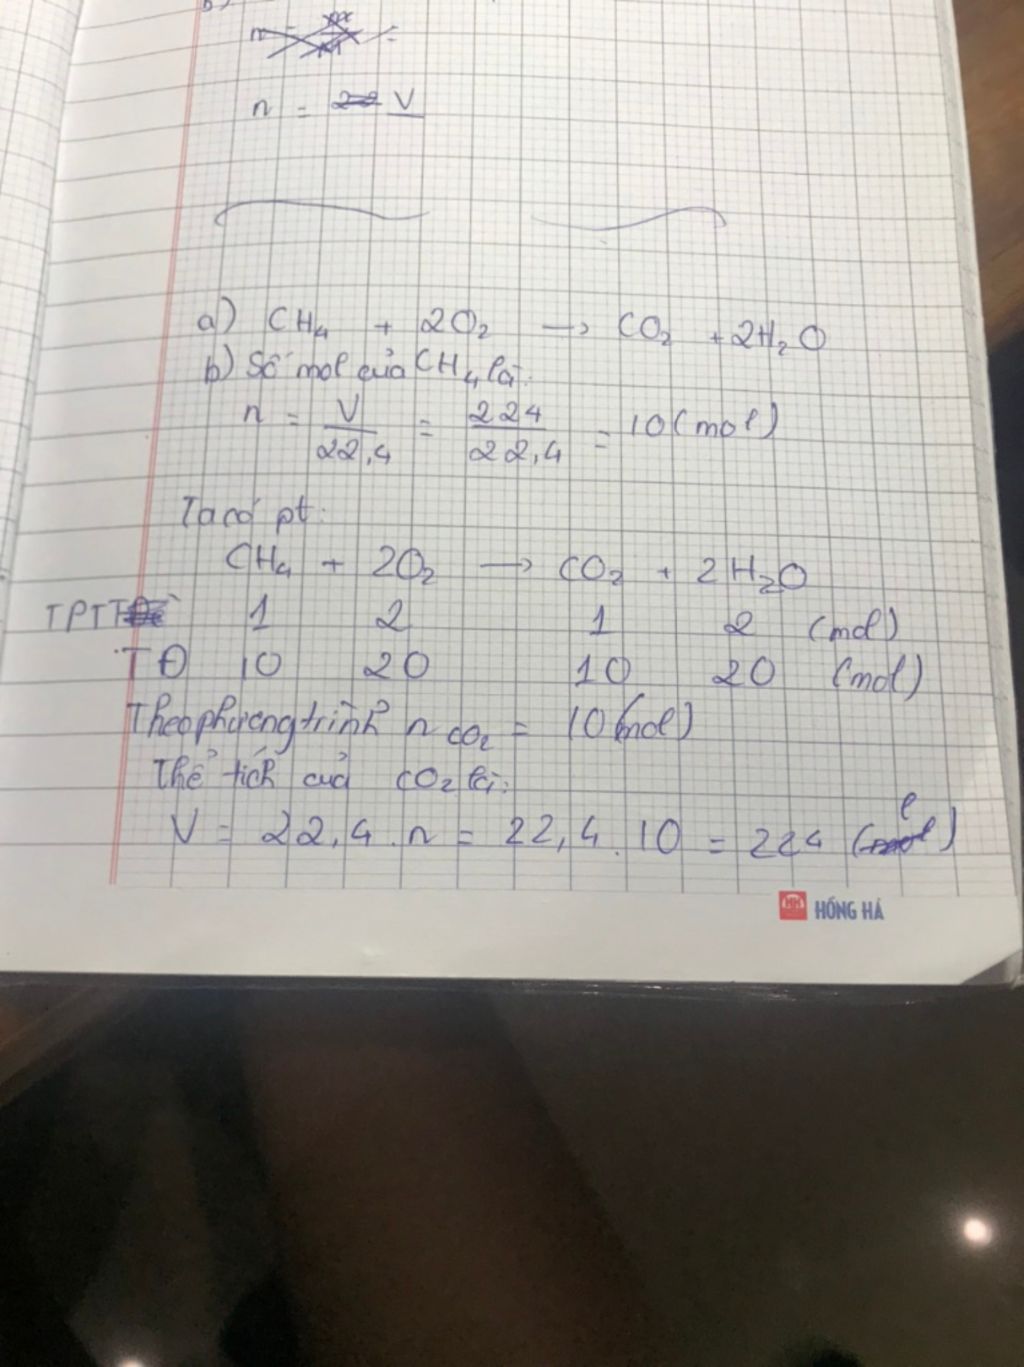 b)
n = V
a) CH₄ + 2O₂ → CO₂ + 2H₂O
b) Số mol của CH₄ là:
n = V/22,4 = 224/22,4 = 10 (mol)
Ta có pt:
CH₄ + 2O₂ → CO₂ + 2H₂O
TPTT 1 2 1 2 (mol)
TĐ 10 20 10 20 (mol)
Theo phương trình n CO₂ = 10 (mol)
Thể tích của CO₂ là:
V = 22,4 . n = 22,4 . 10 = 224 (l)
HH HỒNG HÀ